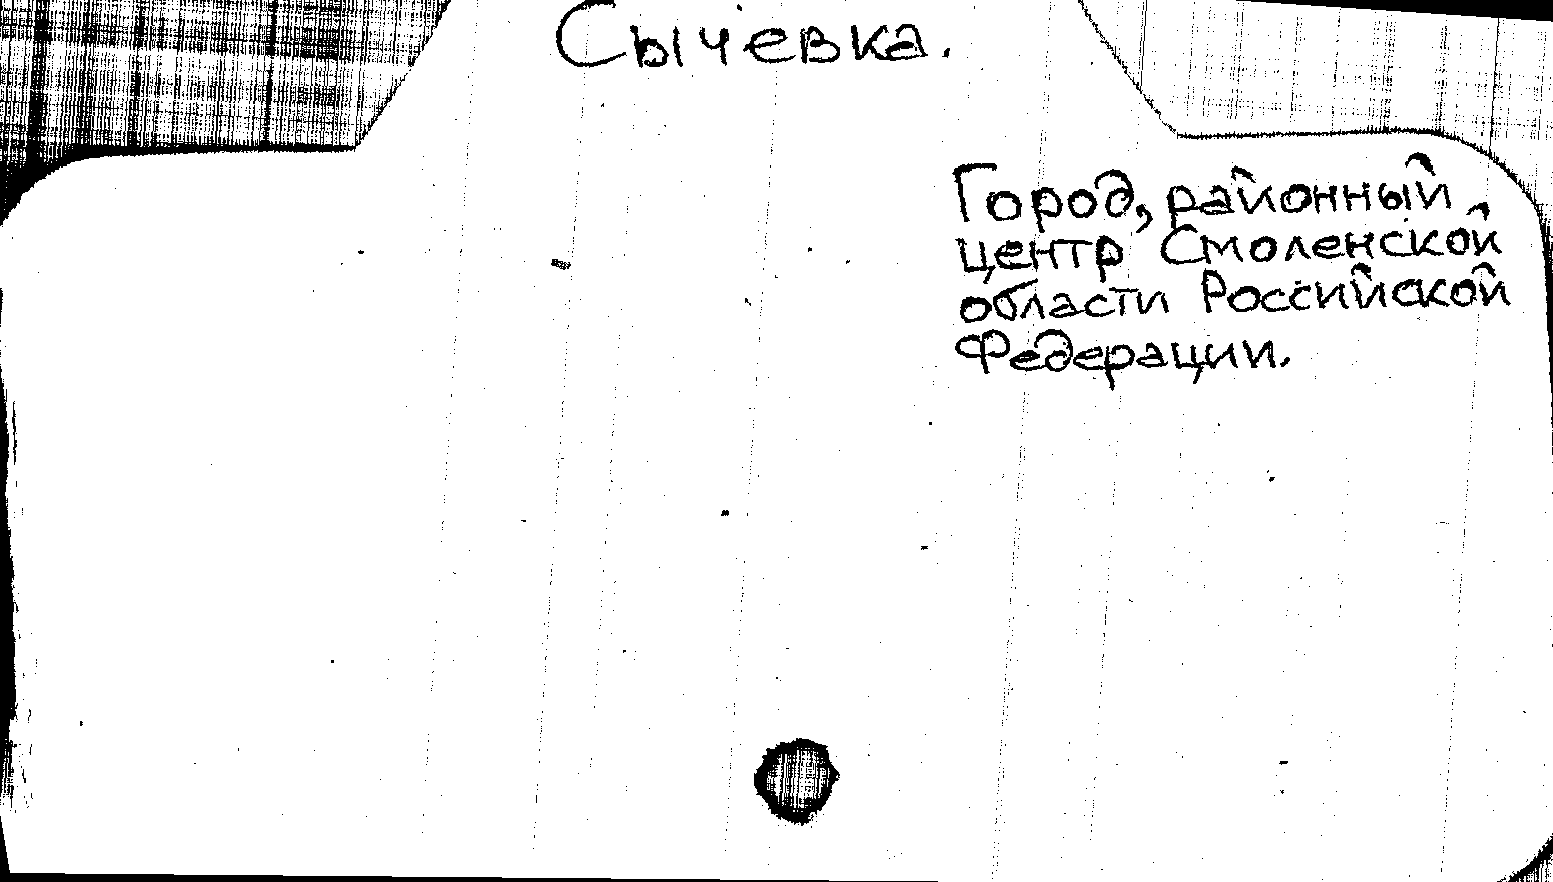 Сычевка.
Город, районный
центр Смоленской
области Российской
Федерации.